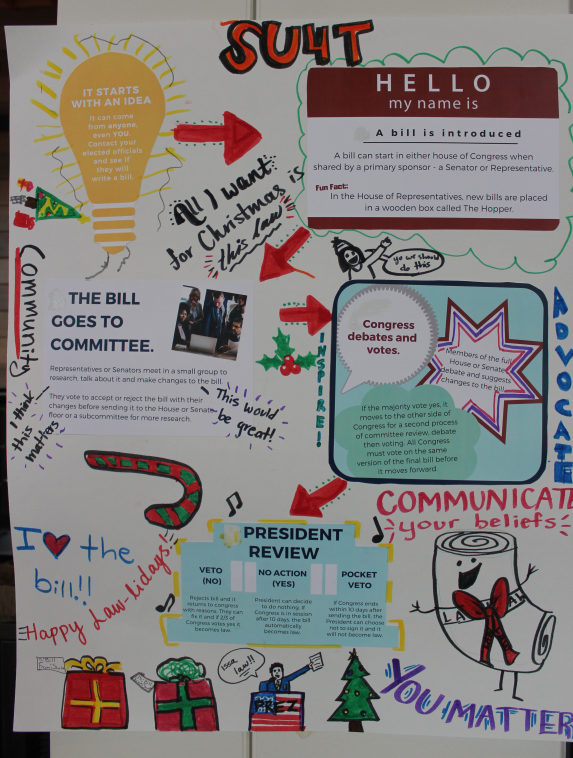 SU4T
IT STARTS
WITH AN IDEA
It can come
from anyone,
even YOU.
Contact your
elected officials
and see if
they will
write a bill.
HELLO
my name is
A bill is introduced
A bill can start in either house of Congress when
shared by a primary sponsor - a Senator or Representative.
Fun Fact:
In the House of Representatives, new bills are placed
in a wooden box called The Hopper.
All I want
for Christmas is
this law
yo we should
do this
Community
THE BILL
GOES TO
COMMITTEE.
Representatives or Senators meet in a small group to
research, talk about it and make changes to the bill.
They vote to accept or reject the bill with their
changes before sending it to the House or Senate
floor or a subcommittee for more research.
I think
this
matters
This would
be great!
INSPIRE!
Congress
debates and
votes.
Members of the full
House or Senate
debate and suggest
changes to the bill.
If the majority vote yes, it
moves to the other side of
Congress for a second process
of committee review, debate
then voting. All Congress
must vote on the same
version of the final bill before
it moves forward.
ADVOCATE
COMMUNICATE
your beliefs
I the
bill!!
Happy Law-lidays!
PRESIDENT
REVIEW
VETO
(NO)
Rejects bill and it
returns to congress
with reasons. They can
fix it and if 2/3 of
Congress votes yes it
becomes law.
NO ACTION
(YES)
President can decide
to do nothing. If
Congress is in session
after 10 days, the bill
automatically
becomes law.
POCKET
VETO
If Congress ends
within 10 days after
sending the bill, the
President can choose
not to sign it and it
will not become law.
Issa
law!!
PREZ
YOU MATTER